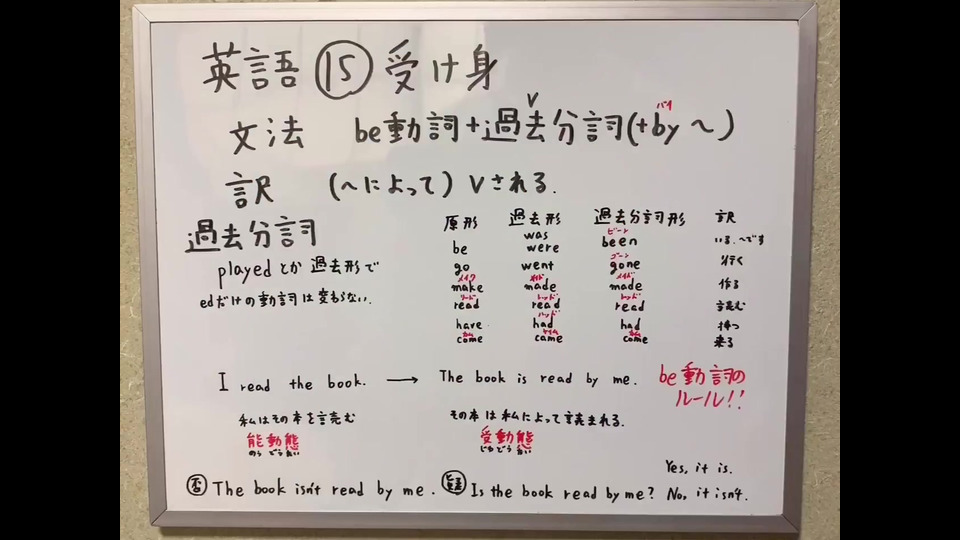 英語 ⑮ 受け身
文法 be動詞+過去分詞(+by ～)
V
バイ
訳 (～によって) Vされる.
過去分詞
playedとか 過去形で
edだけの動詞は変わらない.
原形 過去形 過去分詞形 訳
be was were been ビーン いる.～です
go went gone ゴーン 行く
make メイク made メイド made メイド 作る
read リード read レッド read レッド 読む
have had ハッド had 持つ
come カム came ケイム come カム 来る
I read the book. → The book is read by me.
be動詞の
ルール!!
私はその本を読む その本は私によって読まれる.
能動態 受動態
のうどうたい じゅどうたい
Yes, it is.
否 The book isn't read by me. 疑 Is the book read by me? No, it isn't.